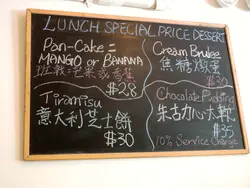 LUNCH SPECIAL PRICE DESSERT
Pan-Cake=
MANGO or BANANA
班戟:芒果或香蕉
$28
Cream Brulee
焦糖燉蛋
Tiramisu
意大利芝士餅
$30
Chocolate Pudding
朱古力心太軟
$35
10% Service Charge